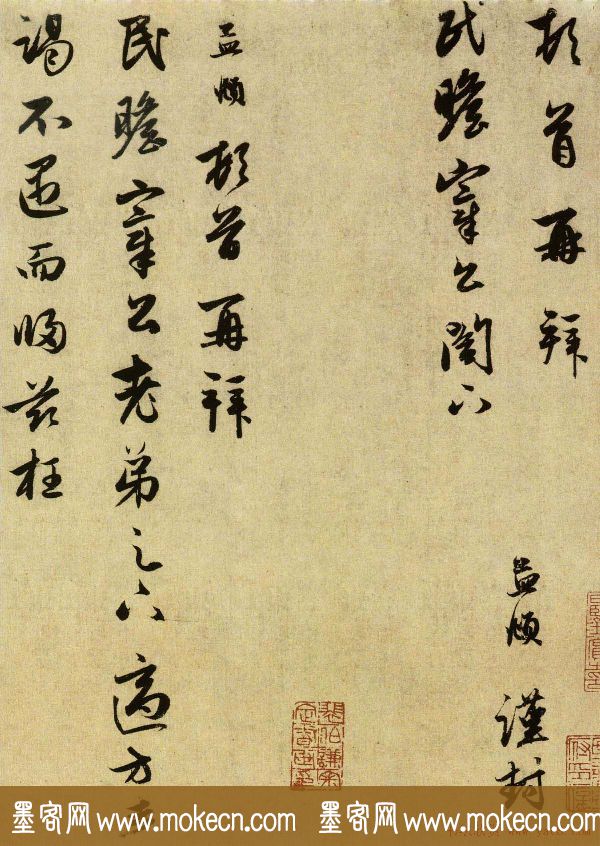 頓首再拜
民瞻宰公閣下
孟頫謹封
孟頫頓首再拜
民瞻宰公老弟足下適方
謁不遇而歸茲枉
墨客网 www.mokecn.com 墨客网 www.mokecn.com